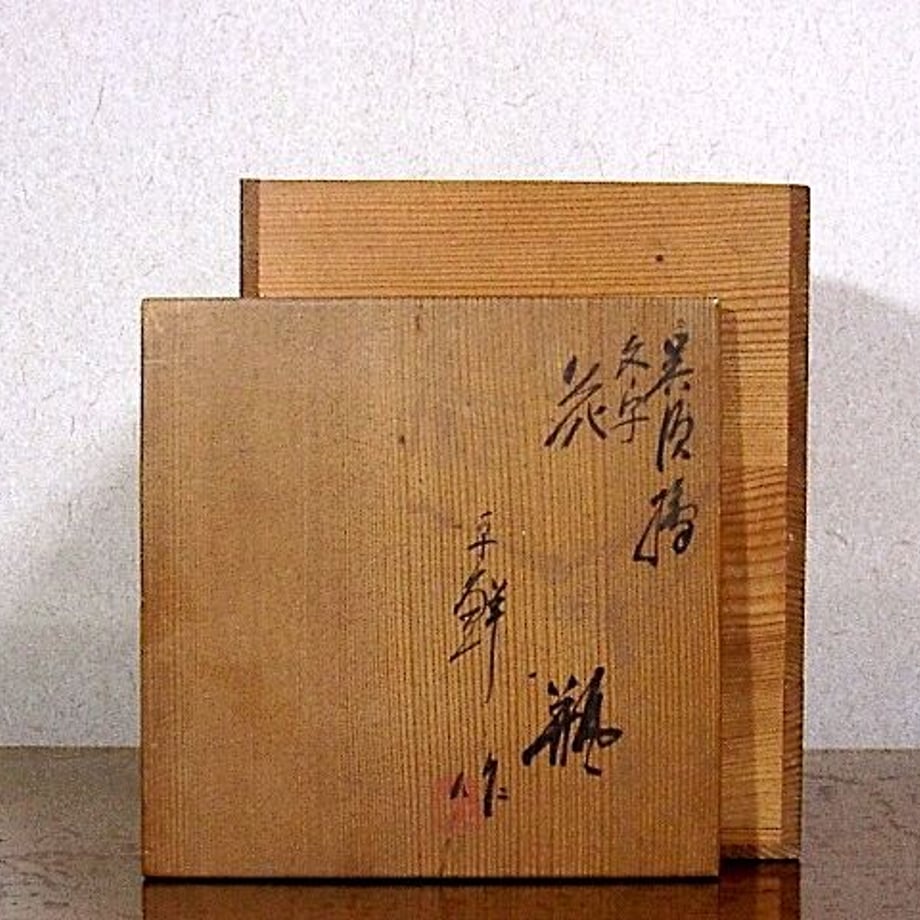 呉須
文字
花瓶
平鮮
作